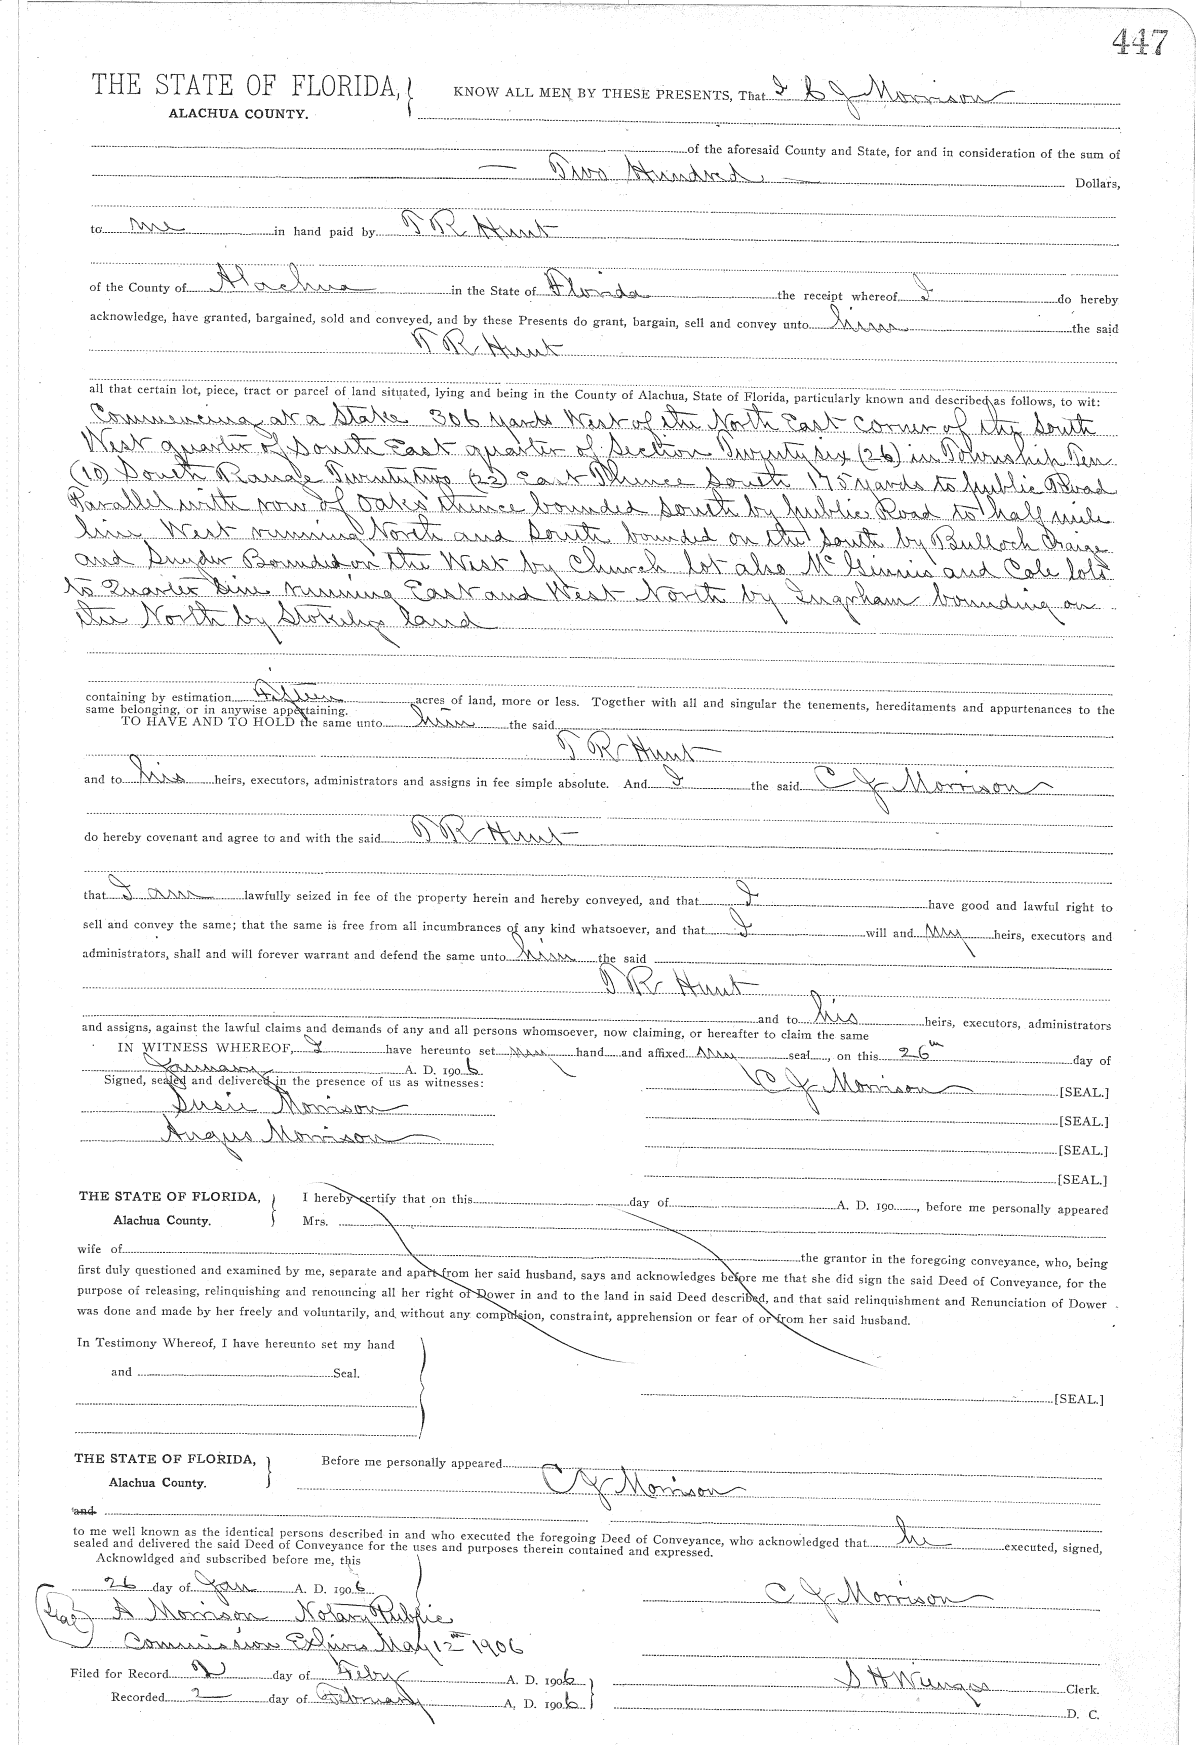 447
THE STATE OF FLORIDA, KNOW ALL MEN BY THESE PRESENTS, That I C J Morrison
ALACHUA COUNTY.
of the aforesaid County and State, for and in consideration of the sum of
Two Hundred Dollars,
to me in hand paid by T R Hunt
of the County of Alachua in the State of Florida the receipt whereof I do hereby
acknowledge, have granted, bargained, sold and conveyed, and by these Presents do grant, bargain, sell and convey unto him the said
T R Hunt
all that certain lot, piece, tract or parcel of land situated, lying and being in the County of Alachua, State of Florida, particularly known and described as follows, to wit:
Commencing at a Stake 306 yards West of the North East Corner of the South
West quarter of South East quarter of Section Twenty six (26) in Township Ten
(10) South Range Twenty two (22) East Thence South 175 yards to public Road
Parallel with row of Oaks thence bounded South by public Road to half mile
line West running North and South bounded on the South by Bulloch
and Snyder Bounded on the West by Church lot also McGinnis and Cole lots
to Quarter line running East and West North by Ingrham bounding on
the North by Stokelys land
containing by estimation fifteen acres of land, more or less. Together with all and singular the tenements, hereditaments and appurtenances to the
same belonging, or in anywise appertaining.
TO HAVE AND TO HOLD the same unto him the said
T R Hunt
and to his heirs, executors, administrators and assigns in fee simple absolute. And I the said C J Morrison
do hereby covenant and agree to and with the said T R Hunt
that I am lawfully seized in fee of the property herein and hereby conveyed, and that I have good and lawful right to
sell and convey the same; that the same is free from all incumbrances of any kind whatsoever, and that I will and my heirs, executors and
administrators, shall and will forever warrant and defend the same unto him the said
T R Hunt
and to his heirs, executors, administrators
and assigns, against the lawful claims and demands of any and all persons whomsoever, now claiming, or hereafter to claim the same
IN WITNESS WHEREOF, I have hereunto set my hand and affixed my seal, on this 26th day of
January A. D. 1906
Signed, sealed and delivered in the presence of us as witnesses: C J Morrison [SEAL.]
Susie Morrison [SEAL.]
Angus Morrison [SEAL.]
[SEAL.]
THE STATE OF FLORIDA, I hereby certify that on this day of A. D. 190 , before me personally appeared
Alachua County. Mrs.
wife of the grantor in the foregoing conveyance, who, being
first duly questioned and examined by me, separate and apart from her said husband, says and acknowledges before me that she did sign the said Deed of Conveyance, for the
purpose of releasing, relinquishing and renouncing all her right of Dower in and to the land in said Deed described, and that said relinquishment and Renunciation of Dower
was done and made by her freely and voluntarily, and without any compulsion, constraint, apprehension or fear of or from her said husband.
In Testimony Whereof, I have hereunto set my hand
and Seal.
[SEAL.]
THE STATE OF FLORIDA, Before me personally appeared
Alachua County. C J Morrison
and
to me well known as the identical persons described in and who executed the foregoing Deed of Conveyance, who acknowledged that he executed, signed,
sealed and delivered the said Deed of Conveyance for the uses and purposes therein contained and expressed.
Acknowldged and subscribed before me, this
26 day of Jan A. D. 1906 C J Morrison
(Seal) A Morrison Notary Public
Commission Expires May 12th 1906
Filed for Record 2 day of Feby A. D. 1906 S H Wienges Clerk.
Recorded 2 day of February A. D. 1906 D. C.